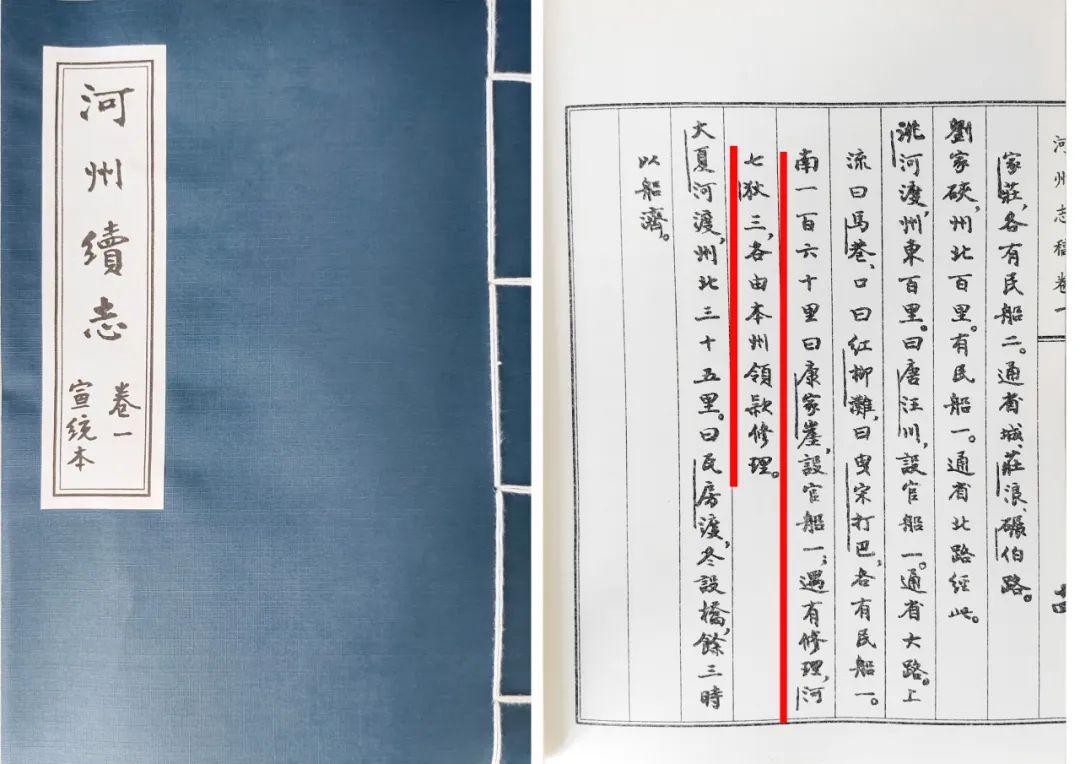 河州續志
卷一
宣统本
河州志稿卷一
家莊,各有民船二。通省城、莊浪、碾伯路。
劉家硤,州北百里。有民船一。通省北路經此。
洮河渡,州東百里。曰唐汪川,設官船一。通省大路。上
流曰馬巷、口曰红柳灘,曰曳宋打巴,各有民船一。
南一百六十里曰康家崖,設官船一;遇有修理,河
七狄三,各由本州領款修理。
大夏河渡,州北三十五里。曰瓦房渡,冬設橋,餘三時
以船濟。